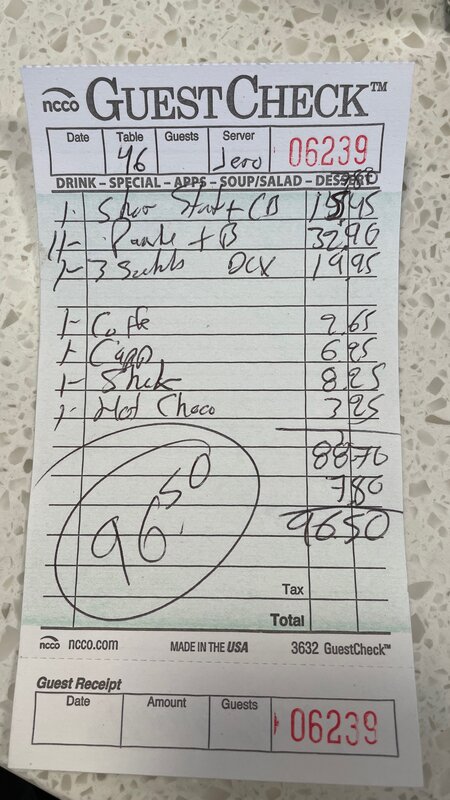 ncco GUESTCHECK™
Date Table Guests Server
46 06239
DRINK – SPECIAL – APPS – SOUP/SALAD – DESSERT
1- + CB 15,45
+ B 32,90
1- 3 DCX 19,95
1- Cofe 2.65
1- Capp 6.95
1- Shak 8.25
1- Hot Choco 3.25
88.70
780
96.50
96 50
Tax
Total
ncco ncco.com MADE IN THE USA 3632 GuestCheck™
Guest Receipt
Date Amount Guests
06239